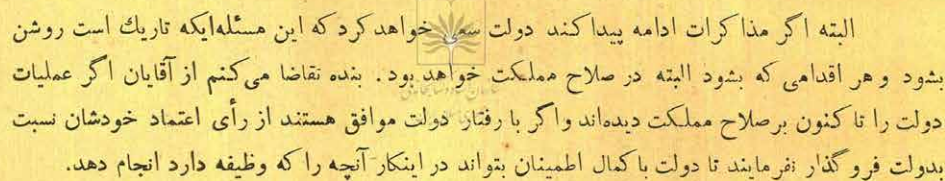 البته اگر مذاکرات ادامه پیدا کند دولت سعی خواهد کرد که این مسئله‌ایکه تاریك است روشن
بشود و هر اقدامی که بشود البته در صلاح مملکت خواهد بود . بنده تقاضا می‌کنم از آقایان اگر عملیات
دولت را تا کنون بر صلاح مملکت دیده‌اند و اگر با رفتار دولت موافق هستند از رأی اعتماد خودشان نسبت
بدولت فروگذار نفرمایند تا دولت با کمال اطمینان بتواند در اینکار آنچه را که وظیفه دارد انجام دهد.